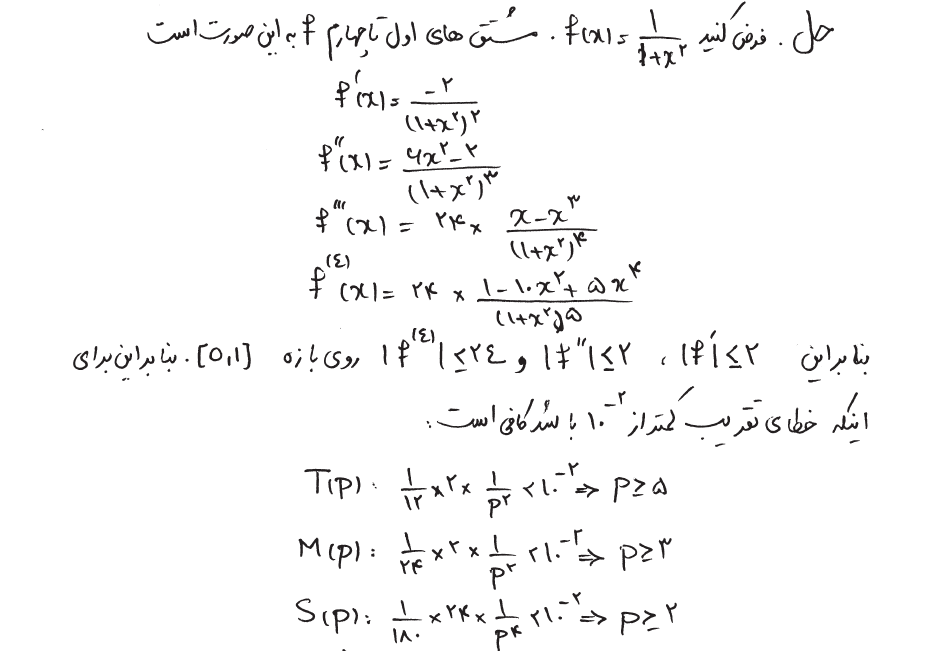 حل . فرض کنید f(x) = ۱/(۱+x^۲) . مشتق های اول تا چهارم f به این صورت است
f'(x) = -۲/(۱+x^۲)^۲
f''(x) = (۶x^۲-۲)/(۱+x^۲)^۳
f'''(x) = ۲۴ × (x-x^۳)/(۱+x^۲)^۴
f^(٤)(x) = ۲۴ × (۱-۱۰x^۲+۵x^۴)/(۱+x^۲)^۵
بنابراین |f'| ≤ ۲ ، |f''| ≤ ۲ و |f^(٤)| ≤ ۲٤ روی بازه [0,1] . بنابراین برای
اینکه خطای تقریب کمتر از ۱۰^-۲ باشد کافی است :
T(p): ۱/۱۲ × ۲ × ۱/p^۲ < ۱۰^-۲ ⇒ p ≥ ۵
M(p): ۱/۲۴ × ۲ × ۱/p^۲ < ۱۰^-۲ ⇒ p ≥ ۳
S(p): ۱/۱۸۰ × ۲۴ × ۱/p^۴ < ۱۰^-۲ ⇒ p ≥ ۲